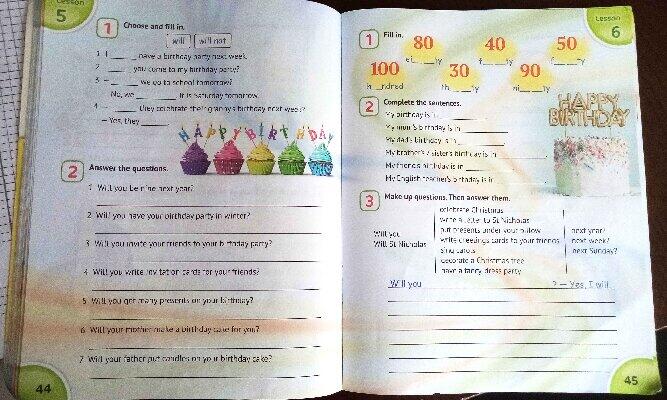 Lesson
5
1 Choose and fill in.
will will not
1 I ______ have a birthday party next week.
2 ______ you come to my birthday party?
3 – ______ we go to school tomorrow?
– No, we ______. It is Saturday tomorrow.
4 ______ they celebrate their granny's birthday next week?
– Yes, they ______
HAPPY BIRTHDAY
2 Answer the questions.
1 Will you be nine next year?
2 Will you have your birthday party in winter?
3 Will you invite your friends to your birthday party?
4 Will you write invitation cards for your friends?
5 Will you get many presents on your birthday?
6 Will your mother make a birthday cake for you?
7 Will your father put candles on your birthday cake?
44
Lesson
6
1 Fill in.
80 40 50
ei____ty f____ty f____ty
100 30 90
h__ndred th____ty ni____ty
2 Complete the sentences.
My birthday is in ______
My mum's birthday is in ______
My dad's birthday is in ______
My brother's / sister's birthday is in ______
My friend's birthday is in ______
My English teacher's birthday is in ______
HAPPY
BIRTHDAY
3 Make up questions. Then answer them.
Will you
Will St Nicholas
celebrate Christmas
write a letter to St Nicholas
put presents under your pillow
write greetings cards to your friends
sing carols
decorate a Christmas tree
have a fancy dress party
next year?
next week?
next Sunday?
Will you ______ ? – Yes, I will.
45